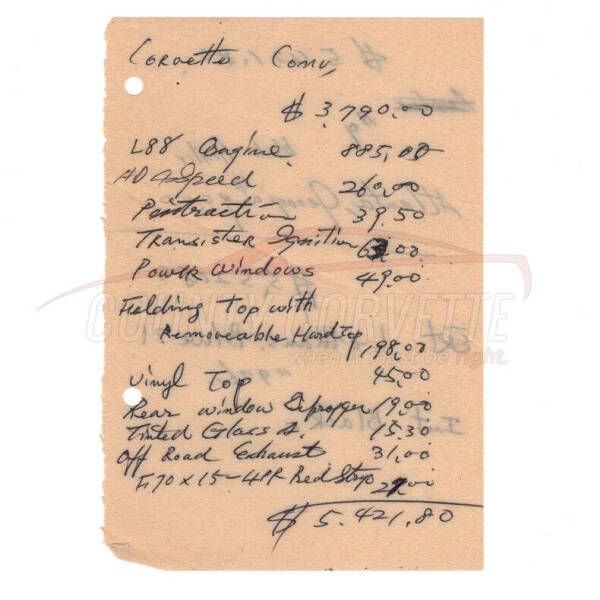 Corvette Conv,
$ 3,790.00
L88 Engine 885,00
HD 4 Speed 260,00
Positraction 39.50
Transister Ignition 63.00
Power Windows 49,00
Folding Top with
Removeable Hardtop 198,00
Vinyl Top 45,00
Rear Window Defrogger 19,00
Tinted Glass 15.30
Off Road Exhaust 31,00
F-70 x 15-4PR Red Strip 27,00
$ 5.421,80
COUNTY CORVETTE
when it must be right.